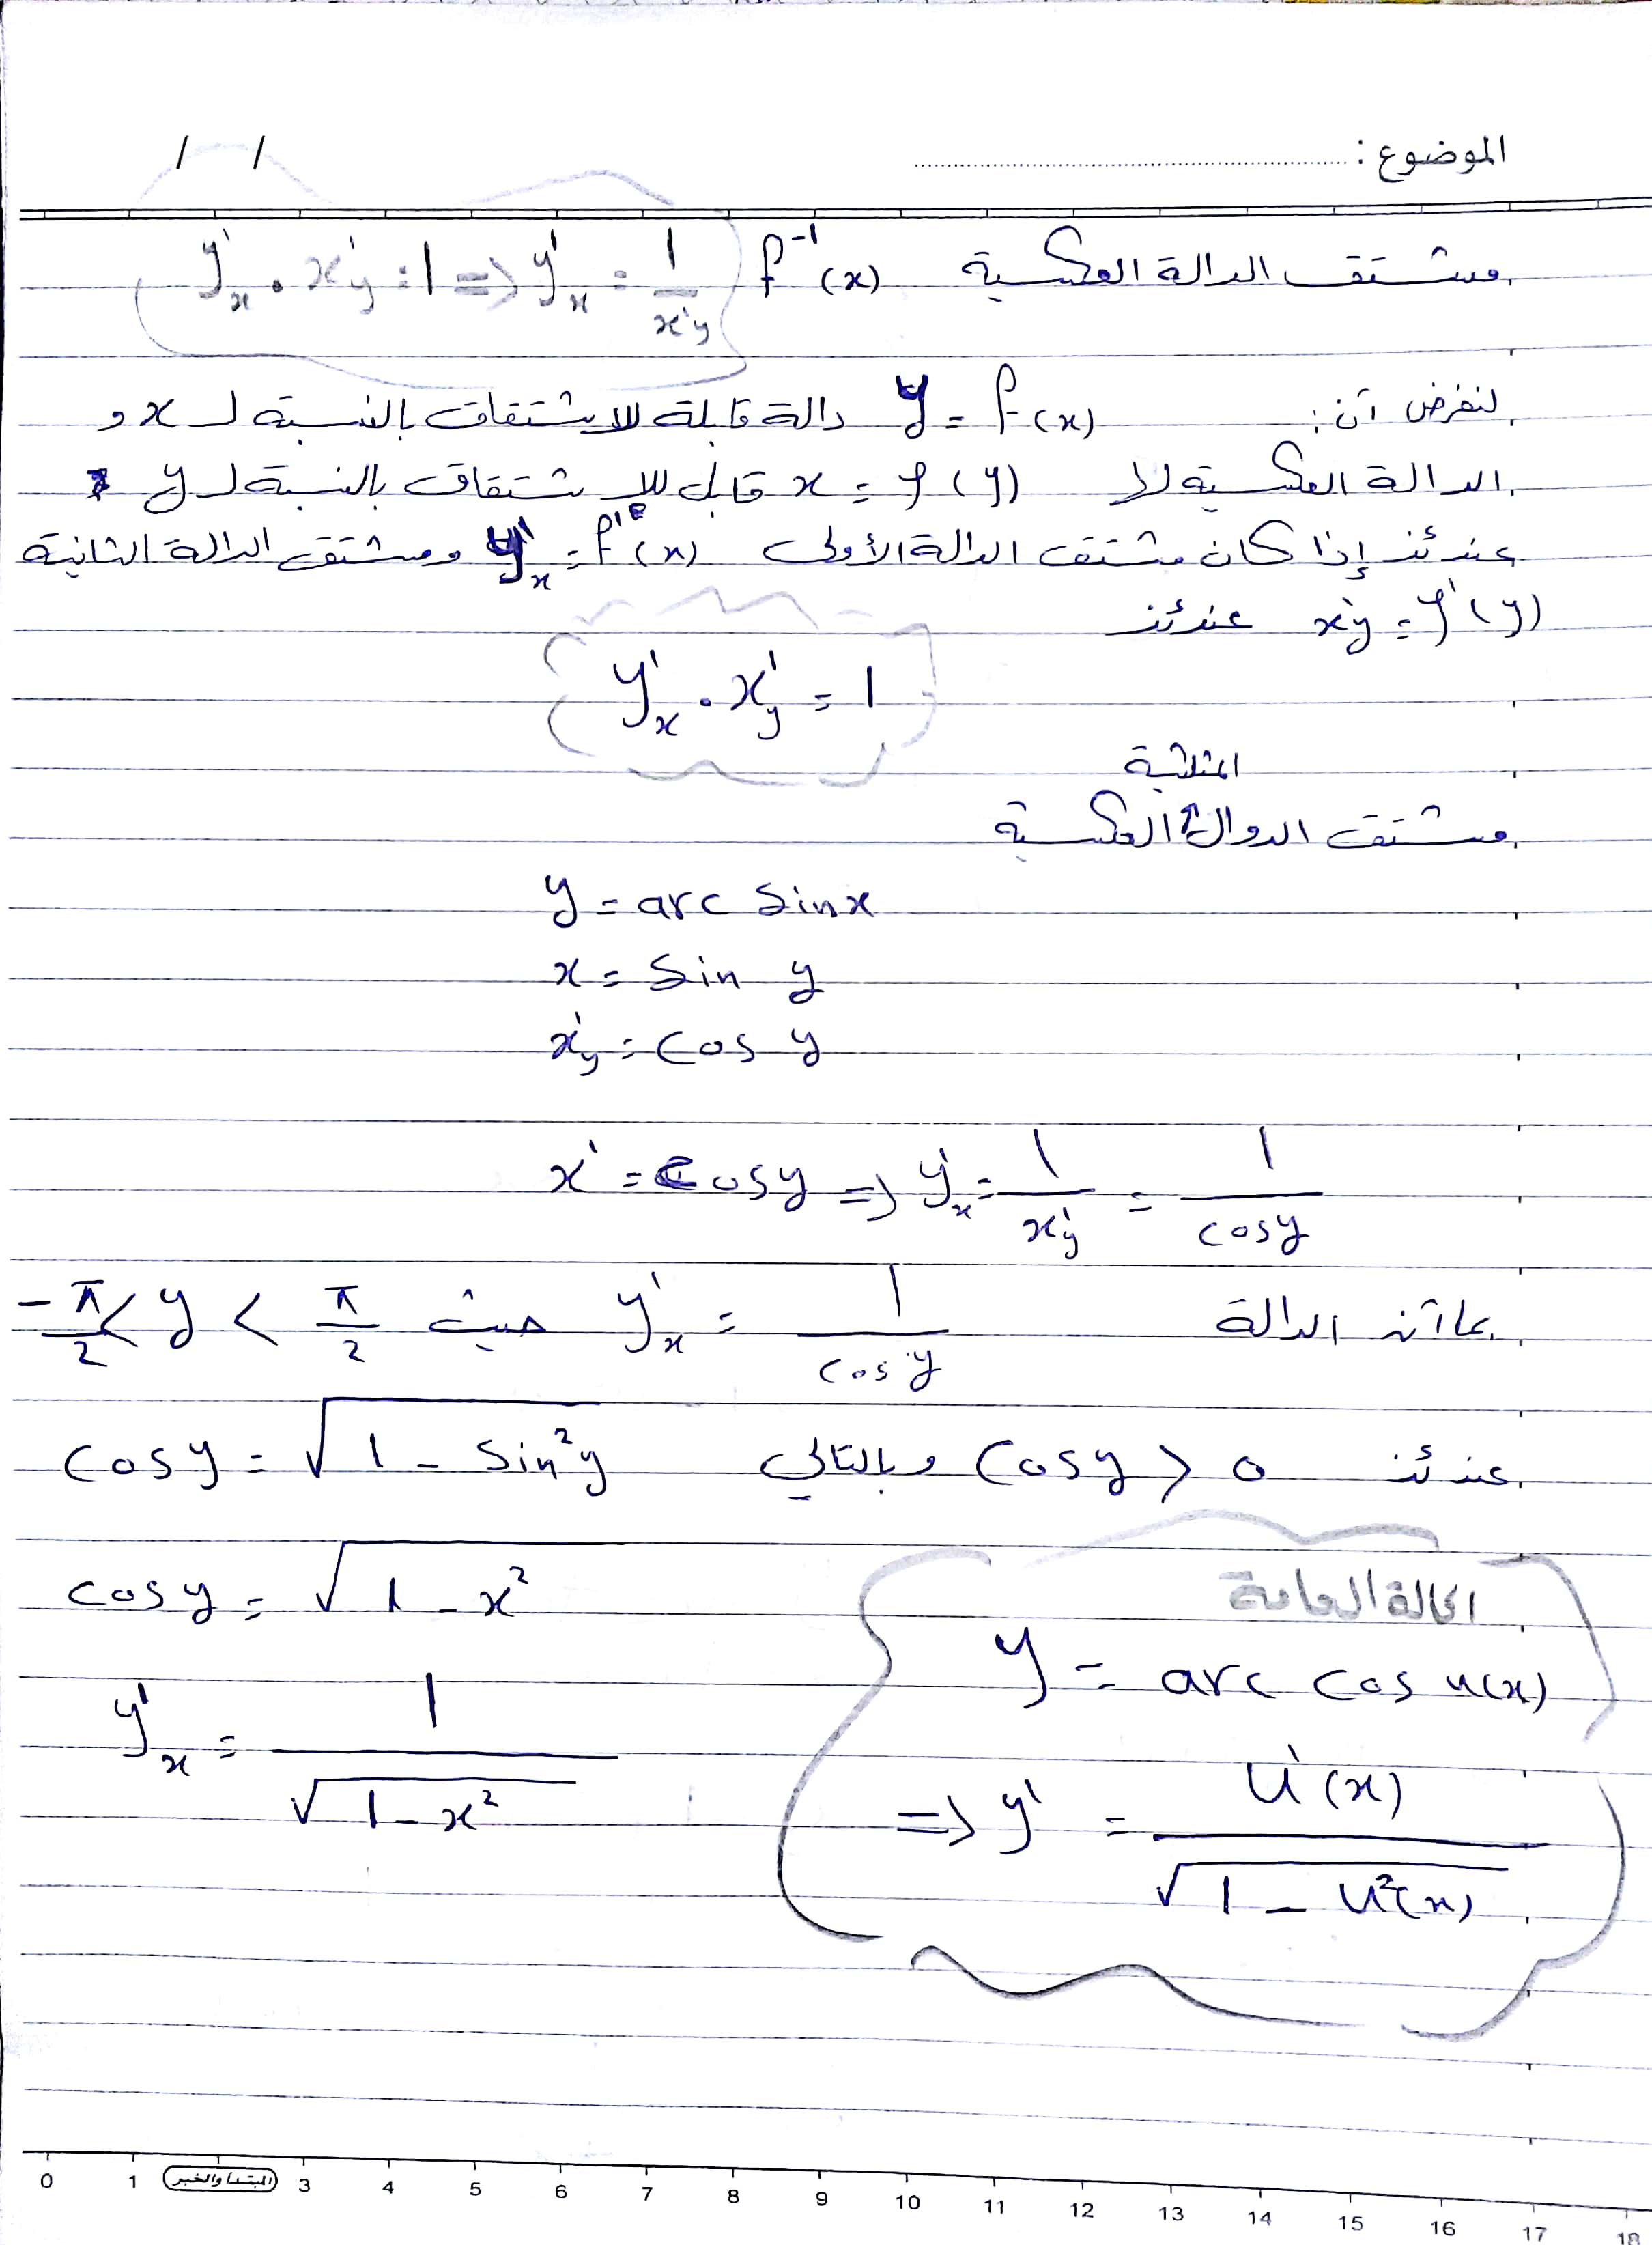 الموضوع :
/ /
مشتقة الدالة العكسية f⁻¹(x)
y'x . x'y = 1 => y'x = 1/x'y
لنفرض أن : y = f(x) دالة قابلة للاشتقاق بالنسبة لـ x و
الدالة العكسية لها x = φ(y) قابل للاشتقاق بالنسبة لـ y
عندئذ إذا كان مشتق الدالة الأولى y'x = f'(x) ومشتق الدالة الثانية
x'y = φ'(y) عندئذ
y'x . x'y = 1
المثلثية
مشتق الدوال العكسية
y = arc sin x
x = sin y
x'y = cos y
x' = cos y => y'x = 1/x'y = 1/cos y
بما أن الدالة y'x = 1/cos y حيث -π/2 < y < π/2
عندئذ cos y > 0 وبالتالي cos y = √(1 - sin²y)
cos y = √(1 - x²)
y'x = 1/√(1 - x²)
الحالة العامة
y = arc cos u(x)
=> y' = u'(x)/√(1 - u²(x))
0 1 المبتدأ والخبر 3 4 5 6 7 8 9 10 11 12 13 14 15 16 17 18